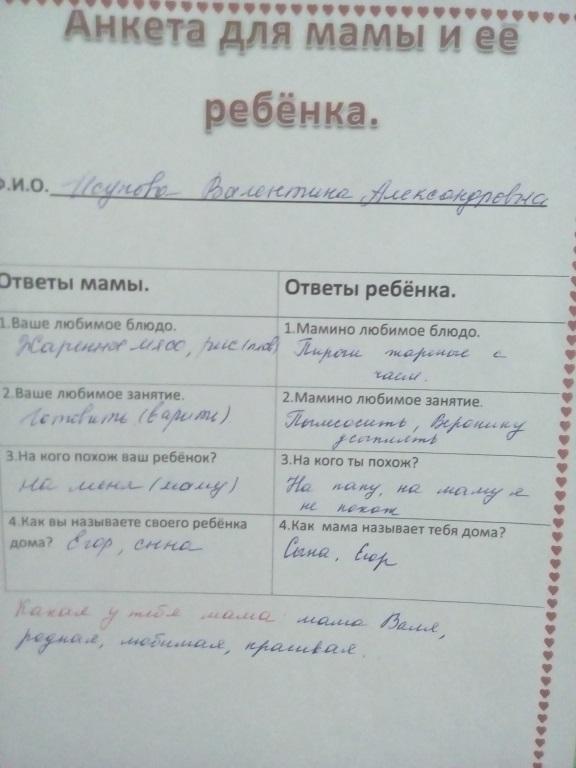 Анкета для мамы и её
ребёнка.
Ф.И.О. Исупова Валентина Александровна
Ответы мамы.
Ответы ребёнка.
1.Ваше любимое блюдо.
Жаренное мясо, рис (плов)
1.Мамино любимое блюдо.
Пироги жареные с
чаем.
2.Ваше любимое занятие.
Готовить (варить)
2.Мамино любимое занятие.
Пылесосить, Веронику
усыплять
3.На кого похож ваш ребёнок?
На меня (маму)
3.На кого ты похож?
На папу, на маму я
не похож
4.Как вы называете своего ребёнка
дома? Егор, сына
4.Как мама называет тебя дома?
Сына, Егор
Какая у тебя мама мама Валя,
родная, любимая, красивая.